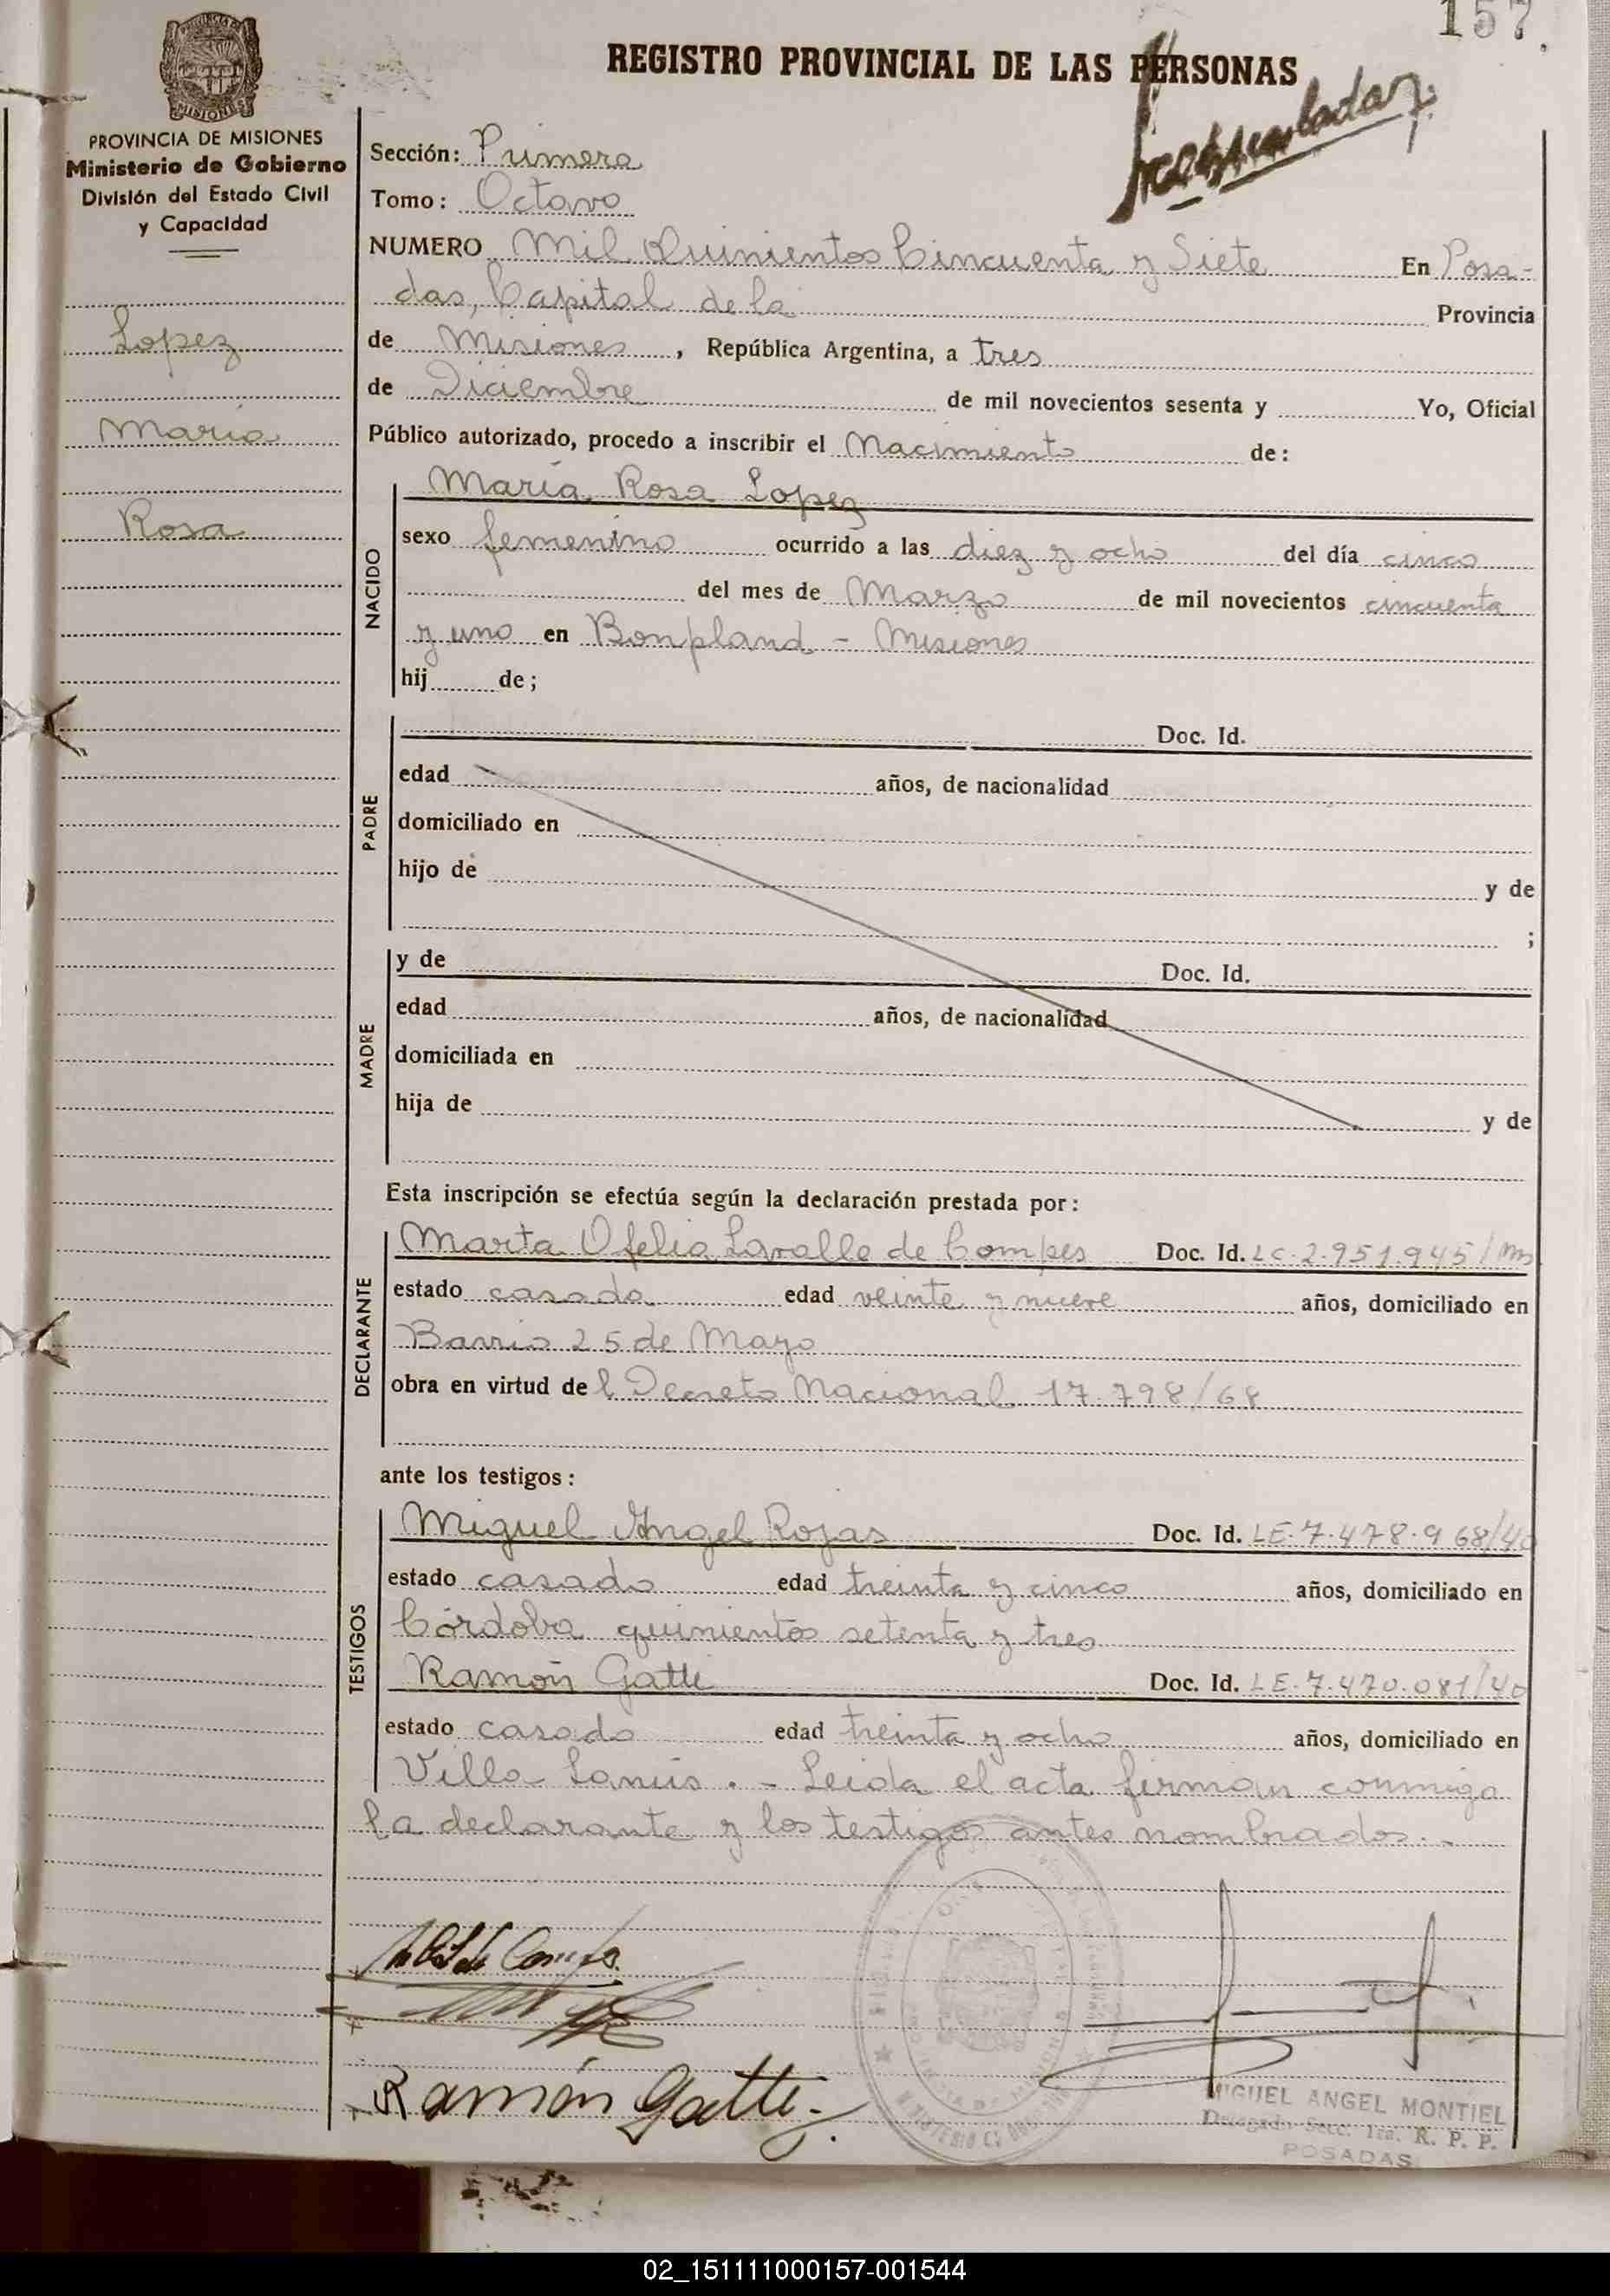 157.
REGISTRO PROVINCIAL DE LAS PERSONAS
PROVINCIA DE MISIONES
Ministerio de Gobierno
División del Estado Civil
y Capacidad
Lopez
Maria
Rosa
Sección: Primera
Tomo: Octavo
NUMERO Mil Quinientos Cincuenta y Siete En Posa-
das, Capital de la Provincia
de Misiones, República Argentina, a tres
de Diciembre de mil novecientos sesenta y Yo, Oficial
Público autorizado, procedo a inscribir el Nacimiento de:
NACIDO
María Rosa Lopez
sexo femenino ocurrido a las diez y ocho del día cinco
del mes de Marzo de mil novecientos cincuenta
y uno en Bonpland - Misiones
hij de;
PADRE
Doc. Id.
edad años, de nacionalidad
domiciliado en
hijo de y de
;
MADRE
y de Doc. Id.
edad años, de nacionalidad
domiciliada en
hija de y de
Esta inscripción se efectúa según la declaración prestada por:
DECLARANTE
Marta Ofelia Lavalle de Compes Doc. Id. LC. 2.951.945/
estado casada edad veinte y nueve años, domiciliado en
Barrio 25 de Mayo
obra en virtud del Decreto Nacional 17.798/68
ante los testigos:
TESTIGOS
Miguel Angel Rojas Doc. Id. LE. 7.478.968/40
estado casado edad treinta y cinco años, domiciliado en
Córdoba quinientos setenta y tres
Ramón Gatti Doc. Id. LE. 7.470.081/40
estado casado edad treinta y ocho años, domiciliado en
Villa Lanús. - Leida el acta firman conmigo
la declarante y los testigos antes nombrados. -
Ramón Gatti.
MIGUEL ANGEL MONTIEL
Delegado Secc. 1ra. R. P. P.
POSADAS
02_151111000157-001544